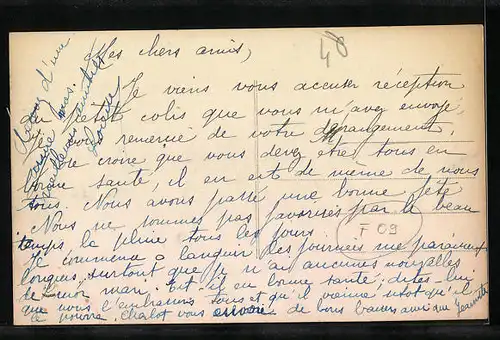 Mes chers amis,
48
Je viens vous accuser réception
du petit colis que vous m'avez envoyé,
Je vous remercie de votre dérangement,
croire que vous devez être tous en
bonne santé, il en est de même de nous
tous. Nous avons passé une bonne fête
Nous ne sommes pas favorisés par le beau
temps, la pluie tous les jours.
F 09
Je commence a languir les journées me paraissent
longues, surtout que je n'ai aucunes nouvelles
de mon mari. Est-il en bonne santé, dites-lui
que nous l'embrassons tous et qu'il vienne sitot qu'il
le pourra, Charlot vous envoie de bons baisers ainsi que Jeannette